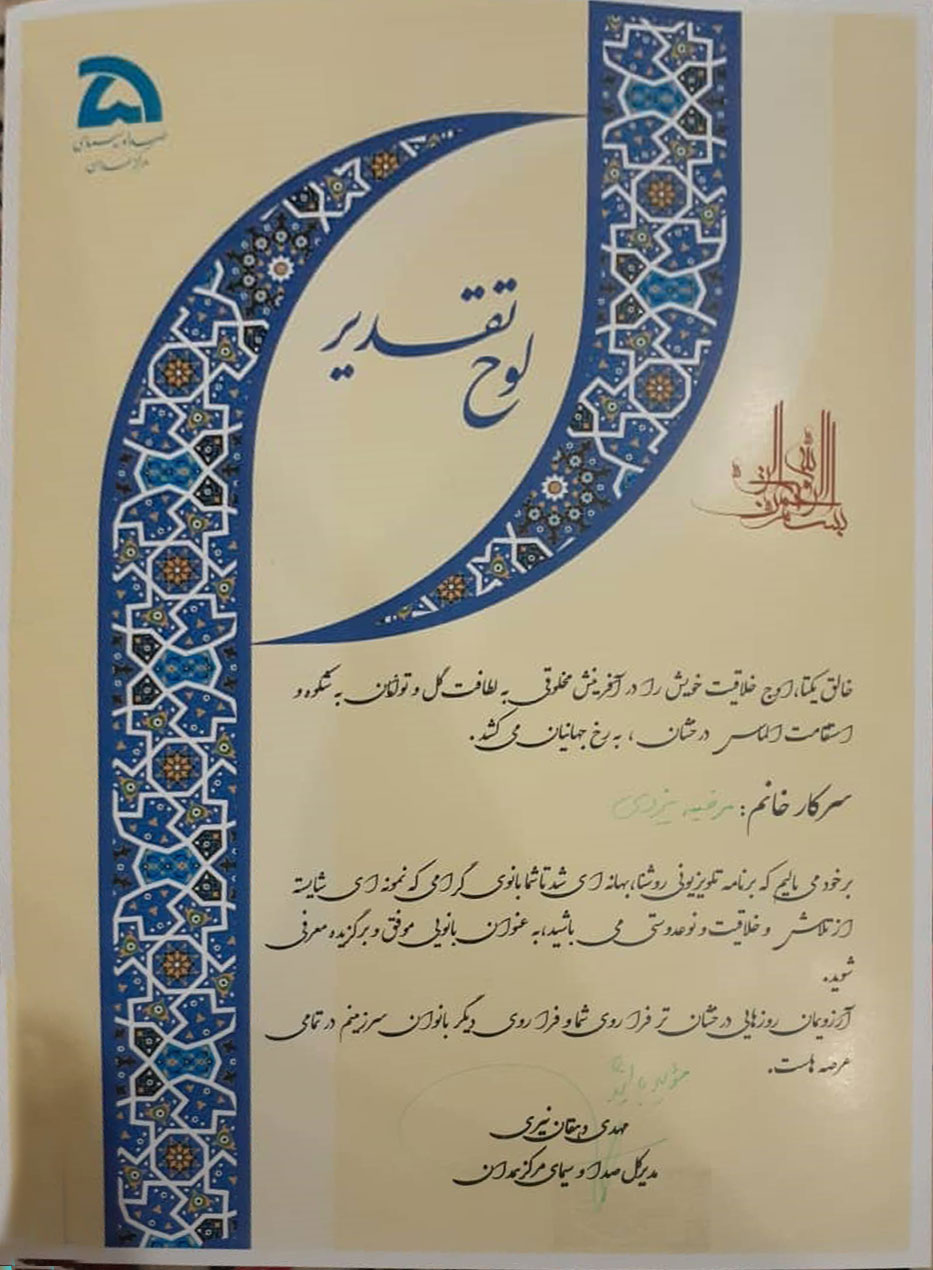 صدا و سیمای
مرکز همدان
لوح تقدیر
بسم الله الرحمن الرحیم
خالق یکتا، اوج خلاقیت خویش را در آفرینش مخلوقی به لطافت گل و توأمان به شکوه و
استقامت الماس درخشان، به رخ جهانیان می کشد.
سرکار خانم: مرضیه یزدی
برخود می بالیم که برنامه تلویزیونی روشنا، بهانه ای شد تا شما بانوی گرامی که نمونه ای شایسته
از تلاش و خلاقیت و نوعدوستی می باشید، به عنوان بانویی موفق و برگزیده معرفی
شوید.
آرزویمان روزهایی درخشان تر فرا روی شما و فرا روی دیگر بانوان سرزمینم در تمامی
عرصه هاست.
مؤید باشید
مهدی دهقان نیری
مدیرکل صدا و سیمای مرکز همدان